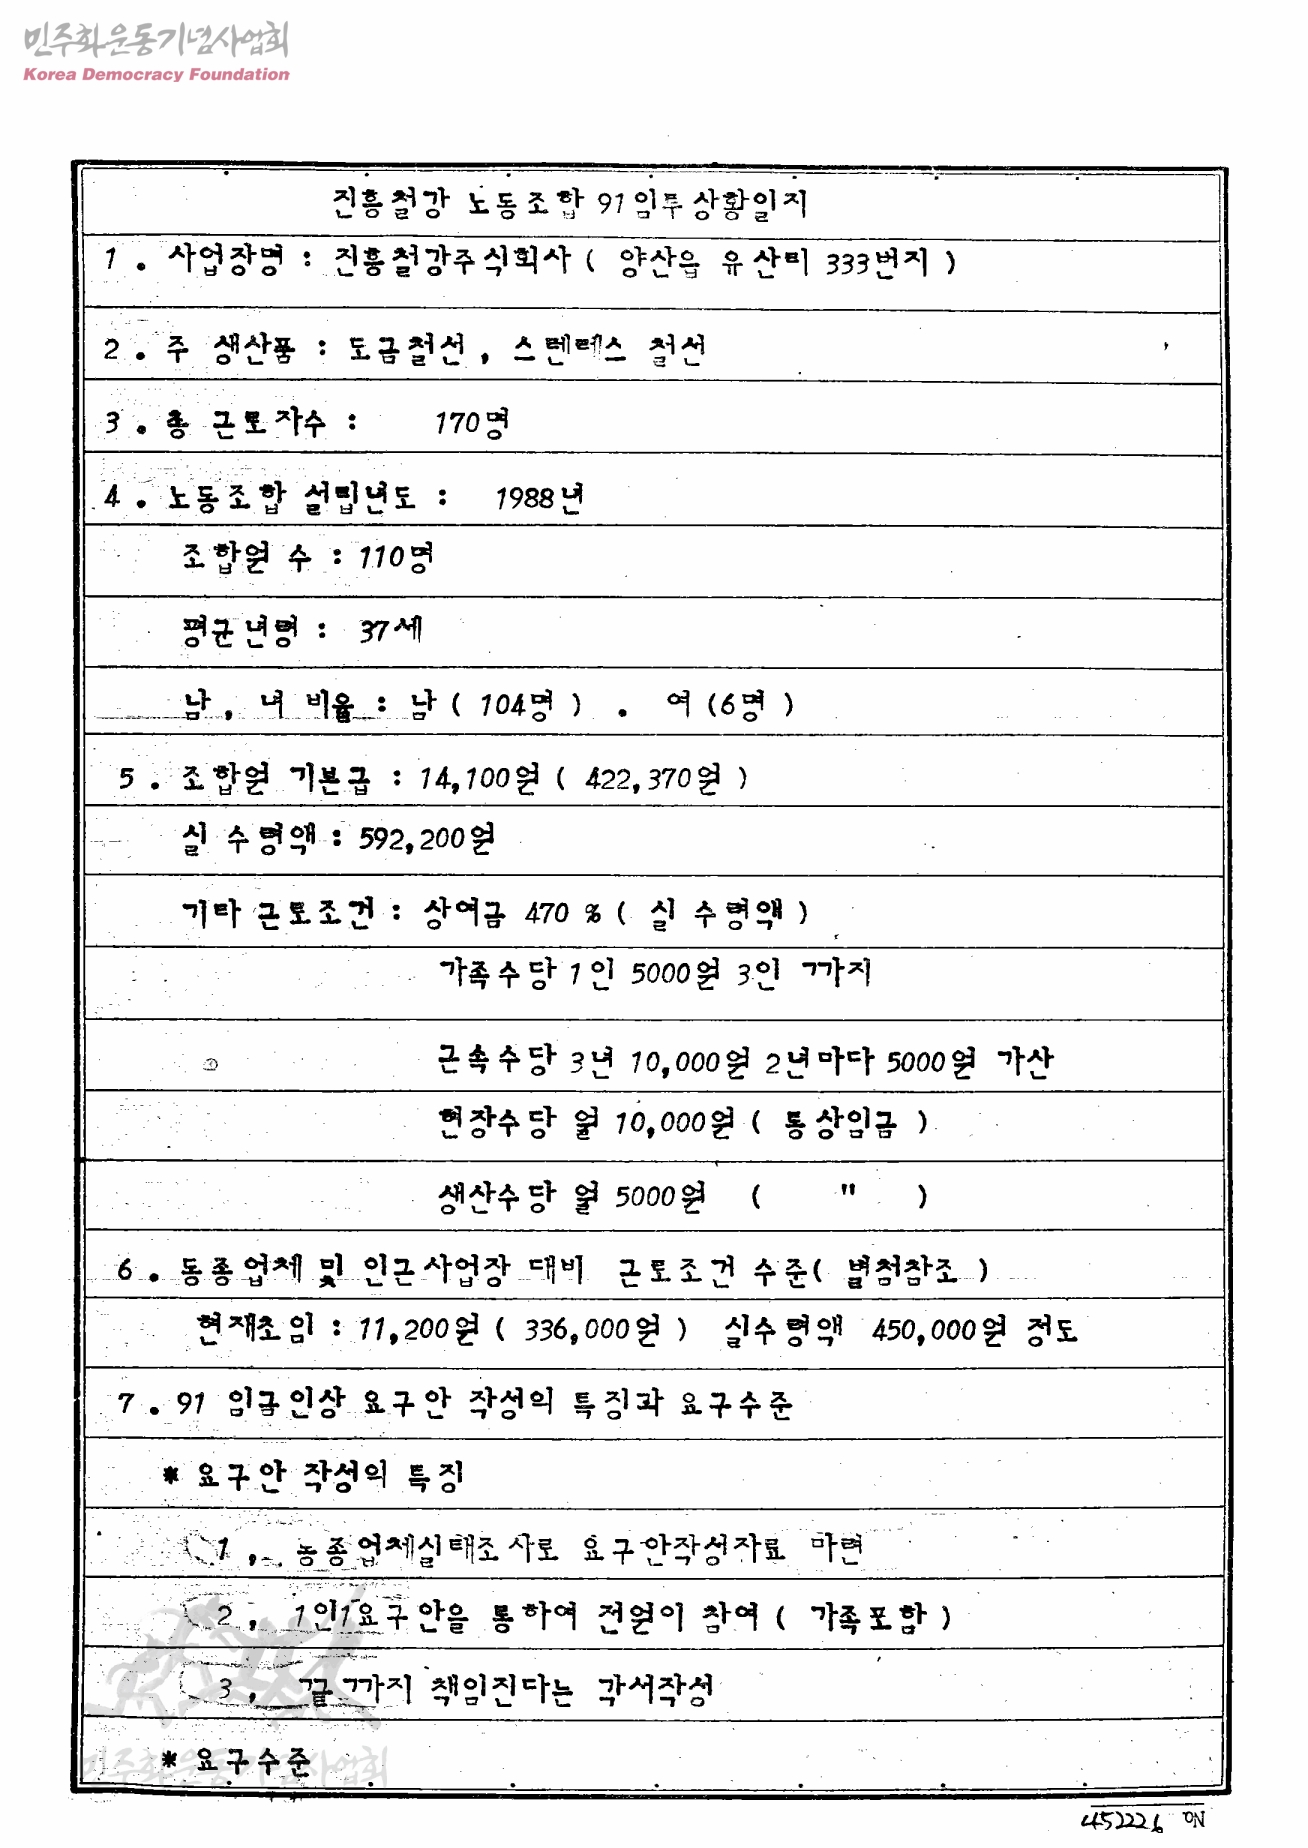 민주화운동기념사업회
Korea Democracy Foundation
진흥철강 노동조합 91임투상황일지
1 . 사업장명 : 진흥철강주식회사 ( 양산읍 유산리 333번지 )
2 . 주 생산품 : 도금철선 , 스텐레스 철선
3 . 총 근로자수 : 170명
4 . 노동조합 설립년도 : 1988년
조합원 수 : 110명
평균년령 : 37세
남 , 녀 비율 : 남 ( 104명 ) . 여 (6명 )
5 . 조합원 기본급 : 14,100원 ( 422,370원 )
실 수령액 : 592,200원
기타 근로조건 : 상여금 470 % ( 실 수령액 )
가족수당 1인 5000원 3인 까지
근속수당 3년 10,000원 2년마다 5000원 가산
현장수당 월 10,000원 ( 통상임금 )
생산수당 월 5000원 ( " )
6 . 동종업체 및 인근사업장 대비 근로조건 수준( 별첨참조 )
현재초임 : 11,200원 ( 336,000원 ) 실수령액 450,000원 정도
7 . 91 임금인상 요구안 작성의 특징과 요구수준
* 요구안 작성의 특징
1 , 동종업체실태조사로 요구안작성자료 마련
2 , 1인1요구안을 통하여 전원이 참여 ( 가족포함 )
3 , 끝까지 책임진다는 각서작성
* 요구수준
민주화운동기념사업회
452226 ON